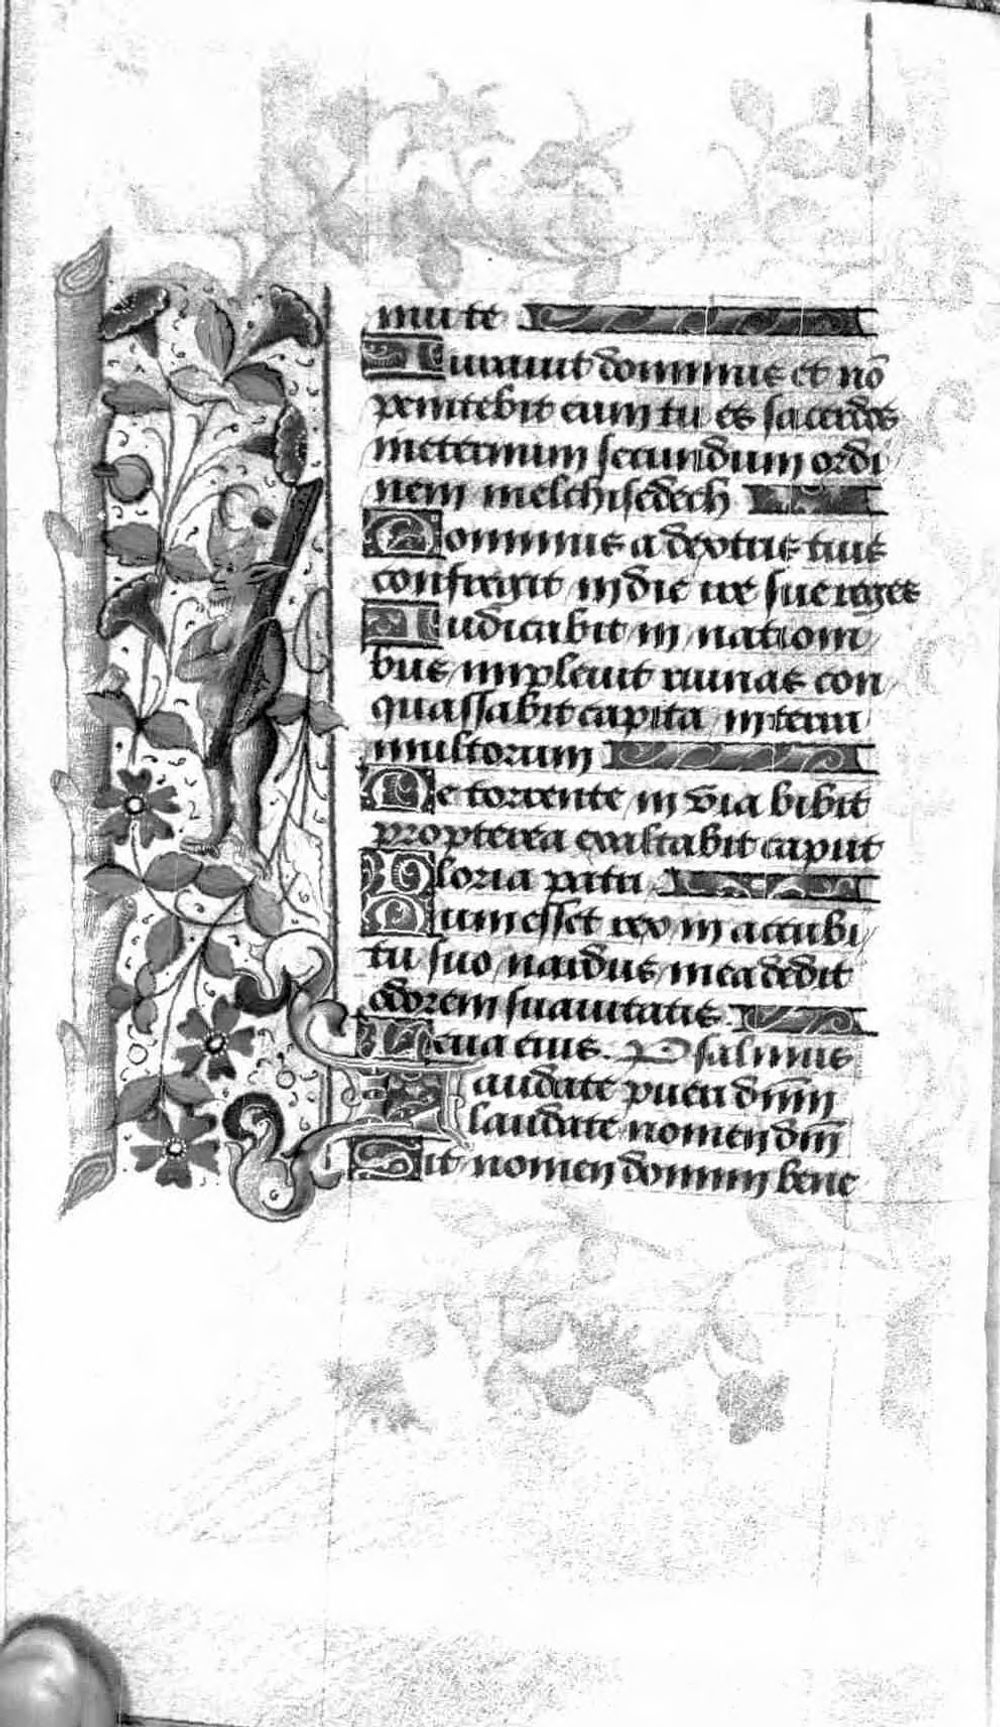 nui te
Iurauit dominus et nõ
penitebit eum tu es sacerdos
ineternum secundum ordi
nem melchisedech
Dominus a dextris tuis
confregit in die ire sue reges
Iudicabit in nationi
bus impleuit ruinas con
quassabit capita in terra
multorum
De torrente in via bibit
propterea exaltabit caput
Gloria patri
Dum esset rex in accubi
tu suo nardus mea dedit
odorem suauitatis.
Leua eius. Psalmus
Laudate pueri dñm
laudate nomen dñi
Sit nomen domini bene